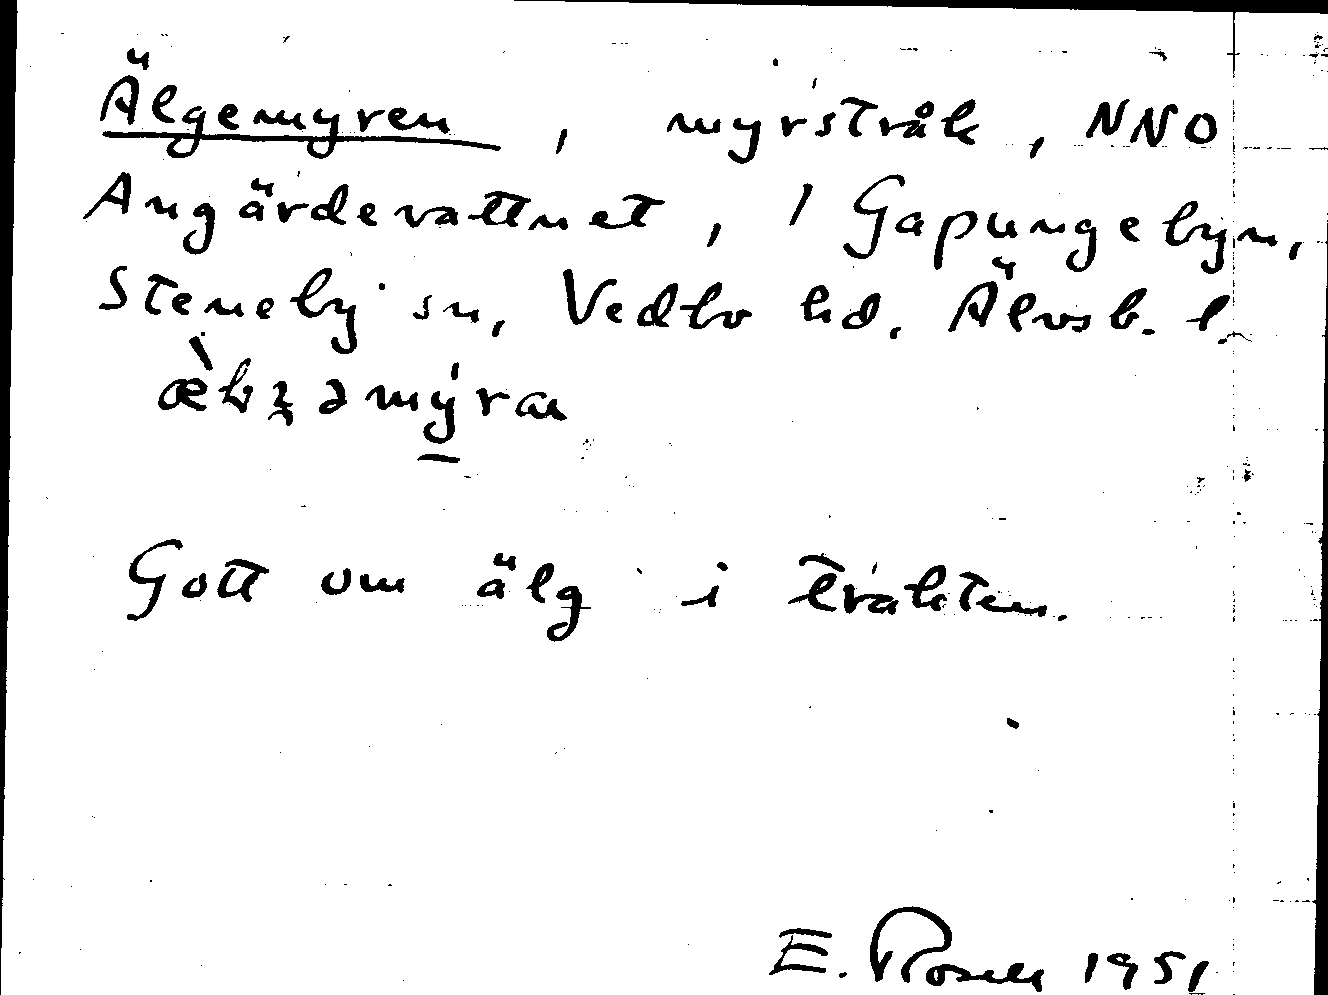 Älgemyren, myrstråk, NNO
Angärdevattnet, 1 Gapungebyn,
Steneby sn, Vedbo hd. Älvsb. l.
Gott om älg i trakten.
E. Rosell 1951